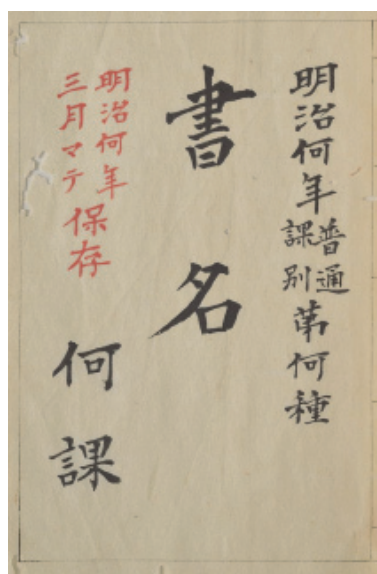 明治何年普通課別第何種
書名
明治何年
三月マテ保存
何課